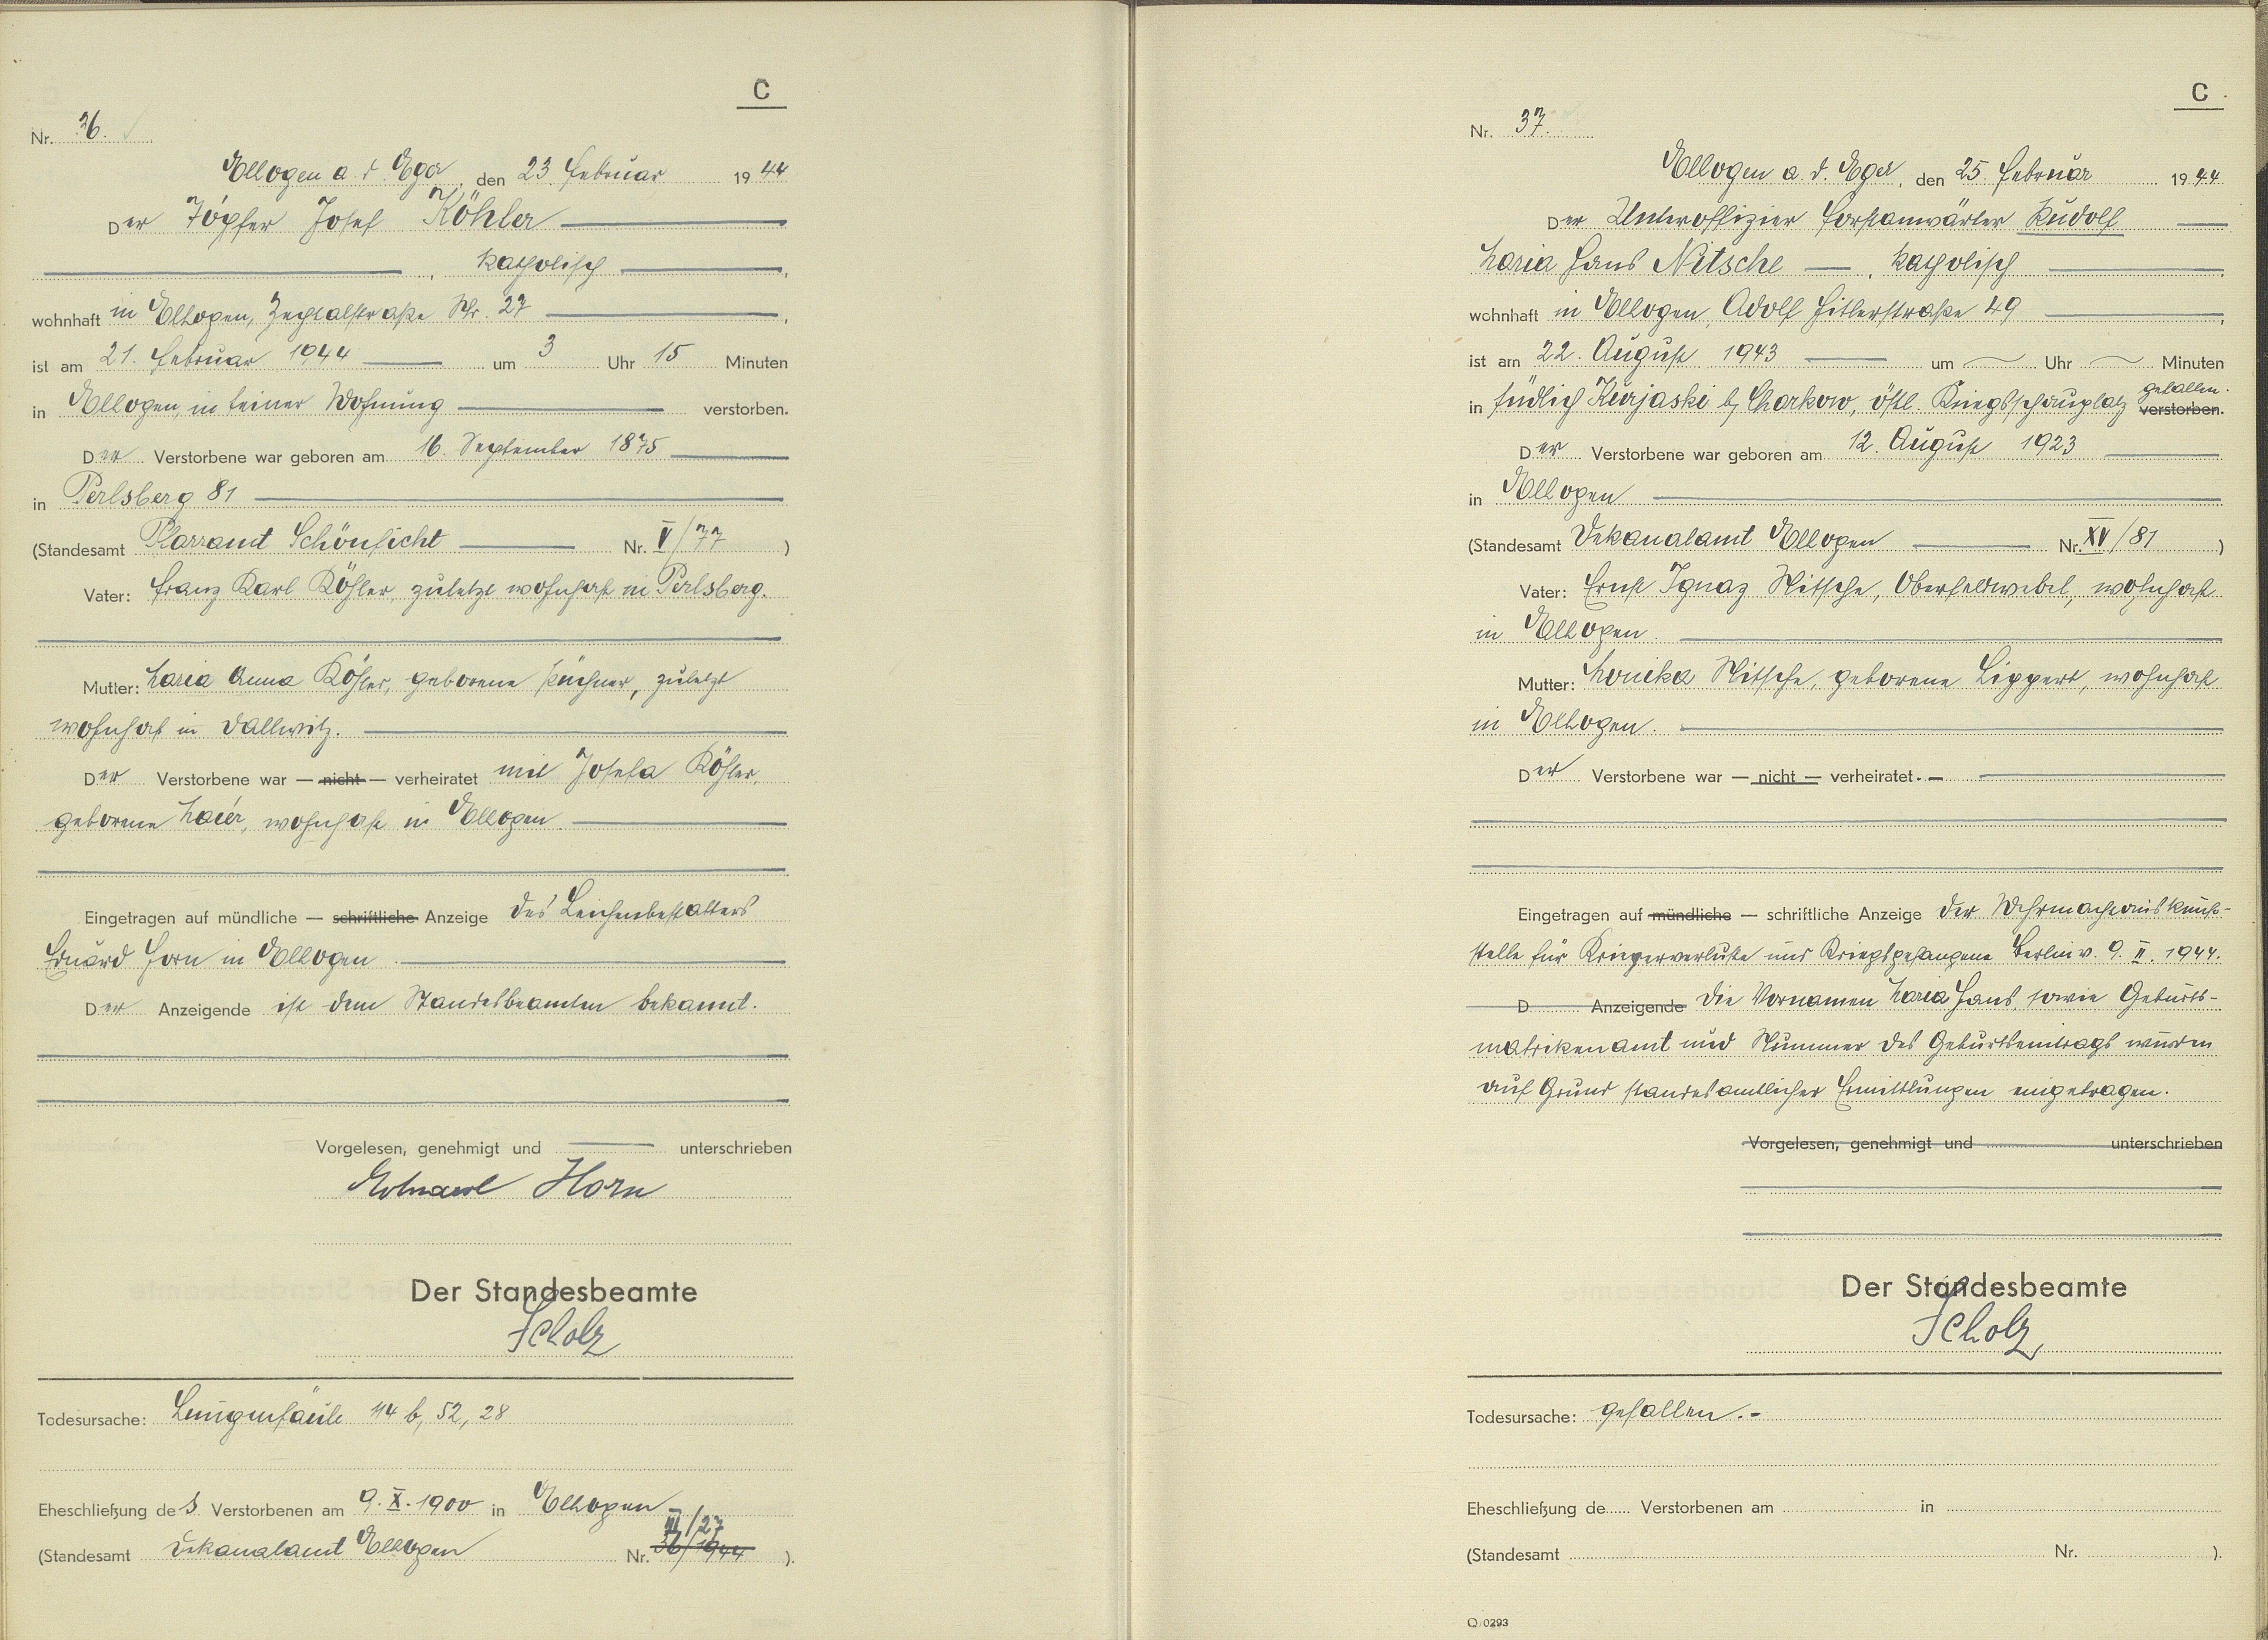 C
Nr. 36.
Ellogen a. d. Eger, den 23. Februar 1944
Der Töpfer Josef Köhler
, katholisch ,
wohnhaft in Ellogen, Zechtalstraße Nr. 27 ,
ist am 21. Februar 1944 um 3 Uhr 15 Minuten
in Ellogen, in seiner Wohnung verstorben.
Der Verstorbene war geboren am 16. September 1875
in Perlsberg 81
(Standesamt Pfarramt Schönficht Nr. V/77 )
Vater: Franz Karl Köhler, zuletzt wohnhaft in Perlsberg.
Mutter: Maria Anna Köhler, geborene Püchner, zuletzt
wohnhaft in Dallwitz.
Der Verstorbene war — nicht — verheiratet mit Josefa Köhler,
geborene Maier, wohnhaft in Ellogen
Eingetragen auf mündliche — schriftliche Anzeige des Leichenbestatters
Eduard Horn in Ellogen
Der Anzeigende ist dem Standesbeamten bekannt.
Vorgelesen, genehmigt und unterschrieben
Eduard Horn
Der Standesbeamte
Scholz
Todesursache: Lungenfäule 114 b, 52, 28
Eheschließung des Verstorbenen am 9. X. 1900 in Ellogen
III/27
(Standesamt Dekanalamt Ellogen Nr. 36/1944 ).
C
Nr. 37.
Ellogen a. d. Eger, den 25. Februar 1944
Der Unteroffizier Forstanwärter Rudolf
Maria Hans Nitsche , katholisch ,
wohnhaft in Ellogen, Adolf Hitlerstraße 49 ,
ist am 22. August 1943 um Uhr Minuten
gefallen.
in südlich Kurjaski b. Charkow, östl. Kriegsschauplatz verstorben.
Der Verstorbene war geboren am 12. August 1923
in Ellogen
(Standesamt Dekanalamt Ellogen Nr. XV/81 )
Vater: Ernst Ignaz Nitsche, Oberfeldwebel, wohnhaft
in Ellogen.
Mutter: Monika Nitsche, geborene Lippert, wohnhaft
in Ellogen.
Der Verstorbene war — nicht — verheiratet.-
Eingetragen auf mündliche — schriftliche Anzeige der Wehrmachtauskunft-
stelle für Kriegerverluste und Kriegsgefangene Berlin v. 9. II. 1944.
D Anzeigende Die Vornamen Maria Hans, sowie Geburts-
matrikenamt und Nummer des Geburtseintrags wurden
auf Grund standesamtlicher Ermittlungen eingetragen.
Vorgelesen, genehmigt und unterschrieben
Der Standesbeamte
Scholz
Todesursache: gefallen.-
Eheschließung de Verstorbenen am in
(Standesamt Nr. ).
Q/0293